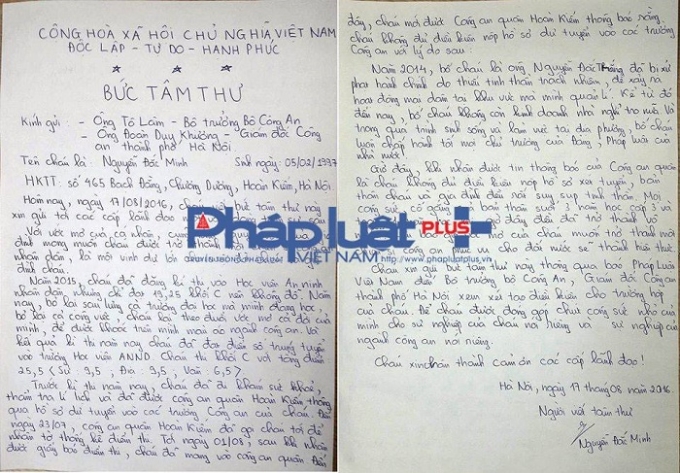 CÔNG HÒA XÃ HÔI CHỦ NGHĨA VIÊT NAM
ĐÔC LÂP - TỰ DO - HANH PHUC
BỨC TÂM THƯ
Kính gửi: - Ông Tô Lâm - Bô trưởng Bô Công An
- Ông Đoàn Duy Khương - Giám đốc Công
an thành phố Hà Nôi
Tên cháu là: Nguyễn Đốc Minh Sinh ngày: 05/02/1997
HKTT: số 465 Bach Đằng, Chương Dương, Hoàn Kiếm, Hà Nôi
Hôm nay, ngày 17/08/2016, cháu viết bưt tâm thư này
xin gửi tới các cấp lãnh đao
Với ước mơ của cá nhân
đình mong muốn cháu được trở thành
nhân dân, là môt vinh dư lớn
đình cháu.
Năm 2015, cháu đã đăng kí thi vào Hoc viên An ninh
nhân dân nhưng chỉ đat 19,25 khối C nên không đỗ. Năm
nay, bỏ lai sau lưng cả trường đai hoc mà mình đang hoc,
bỏ lai cả công viêc, cháu quyết tâm theo đuổi ước mơ của
mình, để được khoác trên mình màu áo ngành công an. Và
kết quả kì thi năm nay cháu đã đat điểm số trúng tuyển
vào trường Hoc viên ANND. Cháu thi khối C với tổng điểm
25,5 < Sử: 9,5; Đia: 9,5; Văn: 6,5 >
Trước kì thi năm nay, cháu đã đi khám sức khoẻ,
thẩm tra lí lich và đã được công an quân Hoàn Kiếm thông
qua hồ sơ dư tuyển vào các trường Công an của cháu. Đến
ngày 23/07, công an quân Hoàn Kiếm đã goi cháu tới để
nhân tờ thống kê điểm thi. Tới ngày 01/08, sau khi nhân
được giấy báo điểm thi, cháu đã mang vào công an quân. Đến
đây, cháu mới được Công an quân Hoàn Kiếm thông báo rằng
cháu không đủ điều kiên nôp hồ sơ dư tuyển vào các trường
Công an với lý do sau:
Năm 2014, bố cháu là ông Nguyễn Đốc Thắng đã bi xử
phat hành chính do thiếu tinh thần trách nhiêm, để xảy ra
hoat đông mai dâm tai khu vưc mà mình quản lí. Kể từ đó
đến nay, bố cháu không còn kinh doanh nhà nghỉ trọ nữa. Và
trong quá trình sinh sống và làm viêc tai đia phương, bố cháu
luôn chấp hành tốt moi chủ trương của Đảng, Pháp luât của
nhà nước.
Giờ đây, khi nhân được tin thông báo của Công an quân
là cháu không đủ điều kiên nôp hồ sơ xét tuyển, bản
thân cháu và gia đình đều rơi vào suy sup tinh thần. Moi
công sức cố gắng của bản thân suốt 3 năm hoc cấp 3 và
giờ đây điều đó trở thành vô
của cháu muốn trở thành môt
công an phuc vu cho đất nước sẽ thành hiên thưc
Cháu xin gửi bưt tâm thư này thông qua báo Pháp Luât
Viêt Nam đến: Bô trưởng Bô công an, Giám đốc Công an
thành phố Hà Nôi xem xét tao điều kiên cho trường hơp
của cháu. Để cháu được đóng góp chút công sức nhỏ của
mình cho sư nghiêp của cháu nói riêng và sư nghiêp của
ngành công an nói chung.
Cháu xin chân thành cảm ơn các cấp lãnh đao!
Hà Nôi, ngày 17 tháng 08 năm 2016.
Người viết tâm thư
Nguyễn Đốc Minh
Phápluật PLUS+
VIỆT NAM
www.phapluatplus.vn